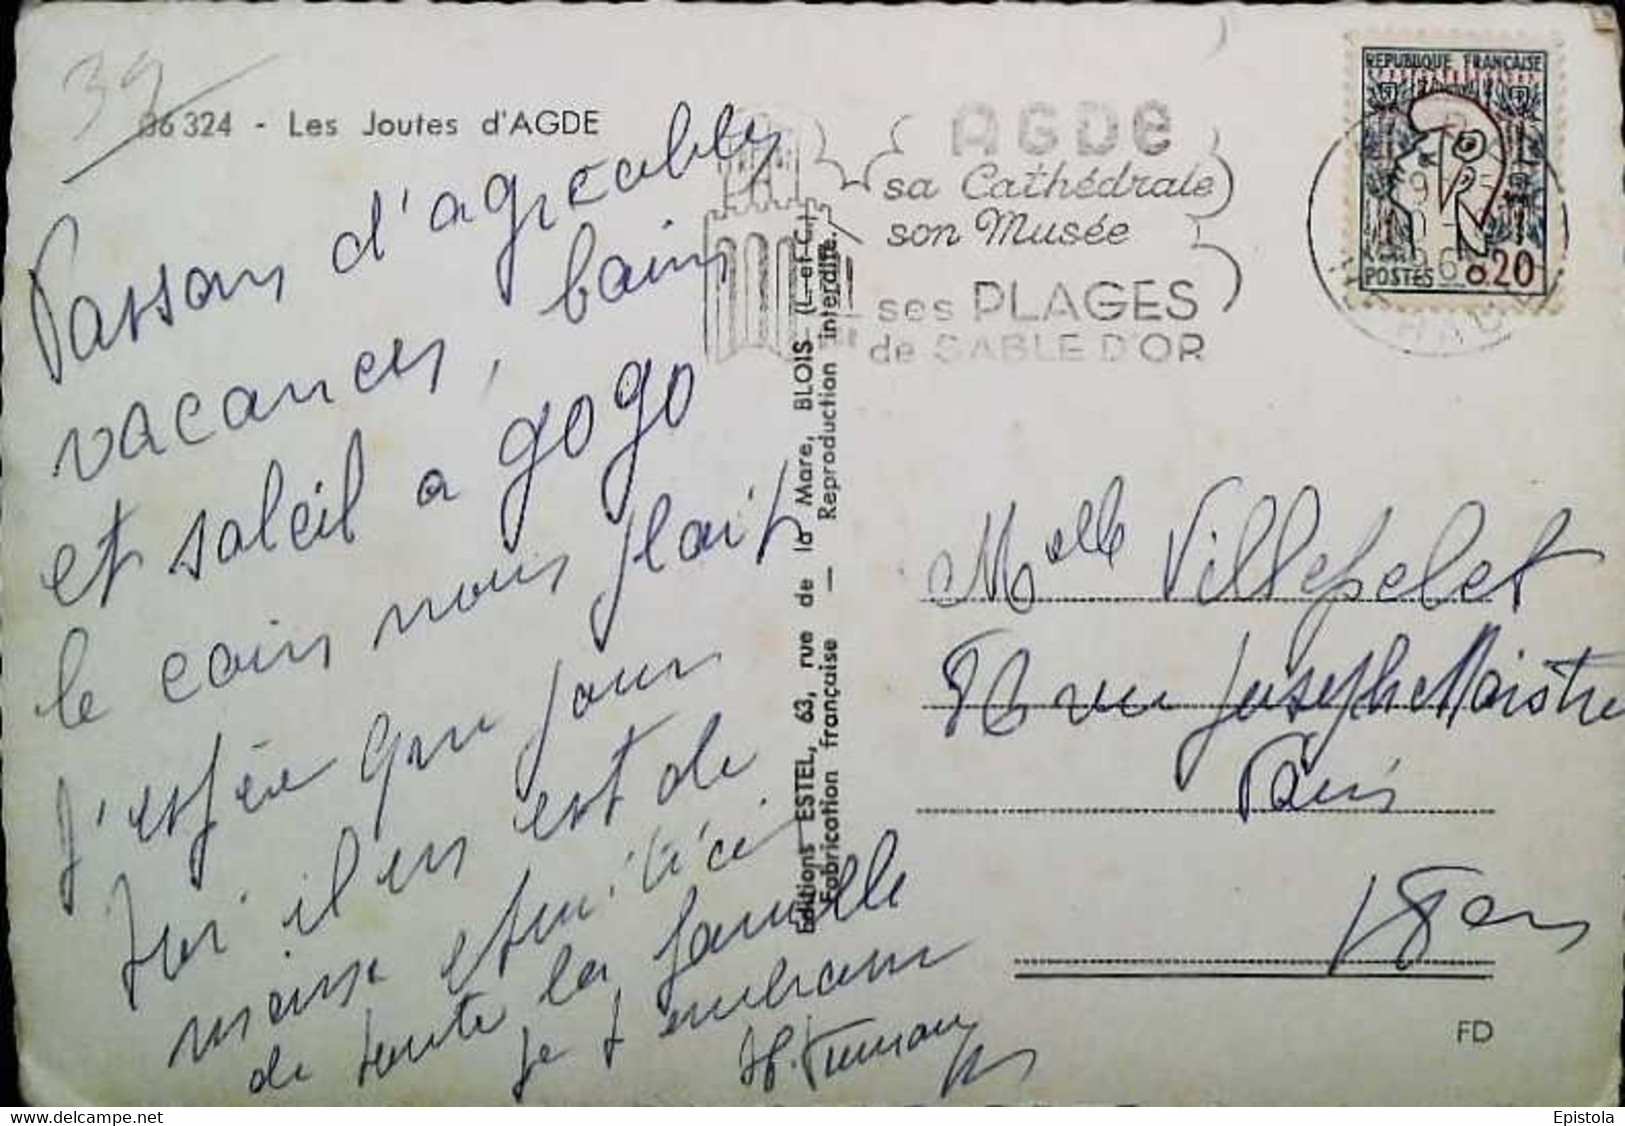 39
86 324 - Les Joutes d'AGDE
Passons d'agreables
vacances, bains
et soleil a gogo
le coin nous plait
J'espère que pour
toi il en est de
même
de toute la famille
je t'embrasse
Editions ESTEL, 63, rue de la Mare, BLOIS (L.-et-C.)
Fabrication française — Reproduction interdite.
AGDE
sa Cathédrale
son Musée
ses PLAGES
de SABLE D'OR
REPUBLIQUE FRANÇAISE
POSTES 0,20
Melle Villepelet
rue Joseph de Maistre
Paris
FD
delcampe.net
Epistola